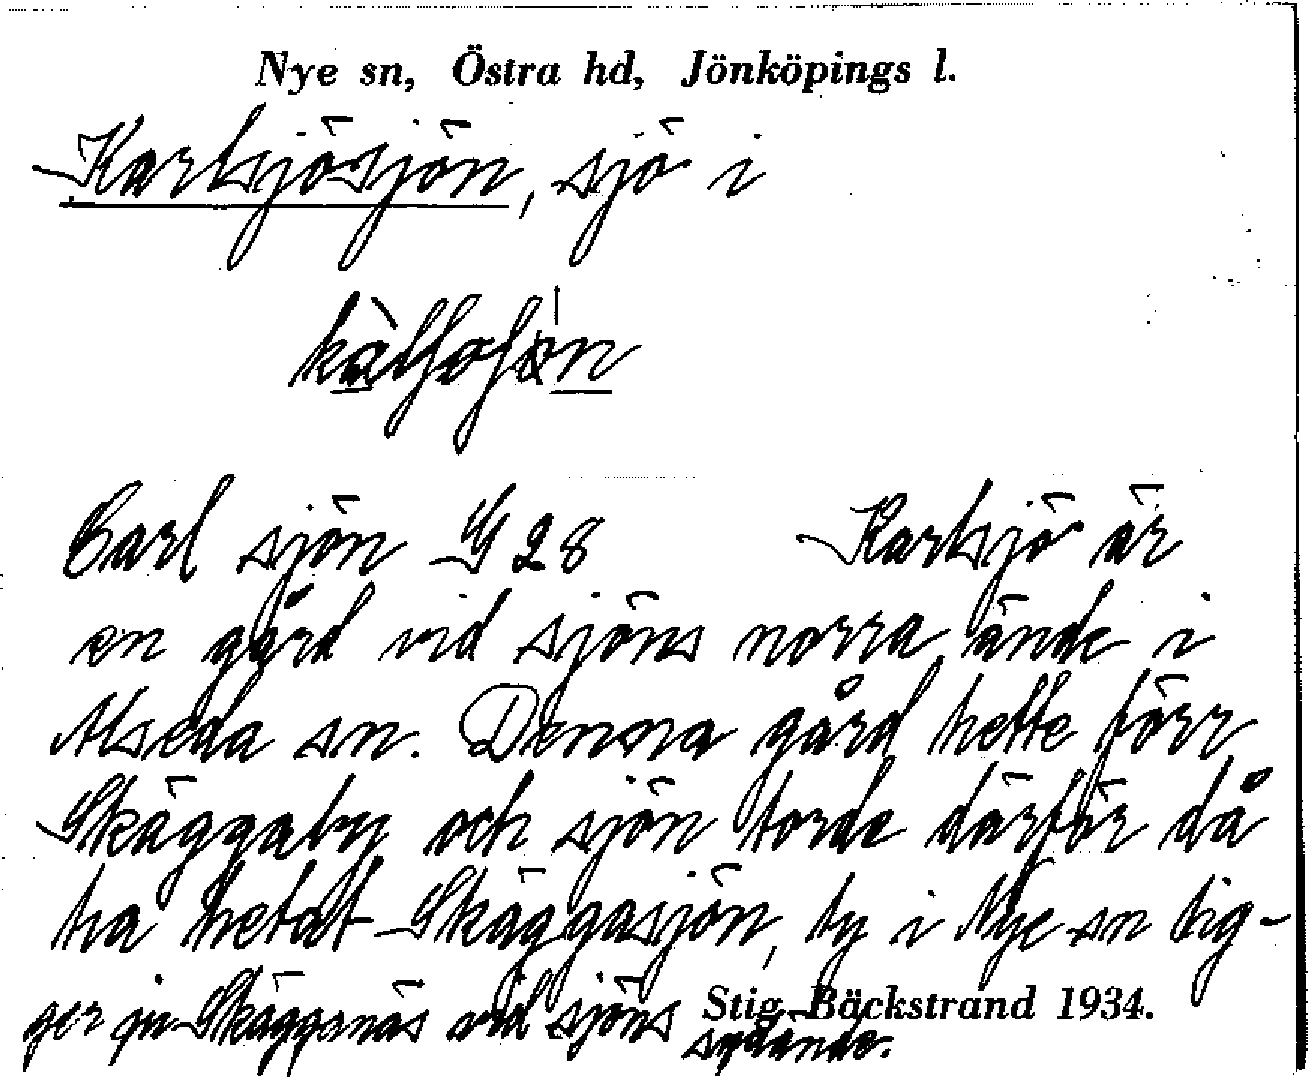 Nye sn, Östra hd, Jönköpings l.
Karlsjösjön, sjö i
Carl sjön G 28 Karlsjö är
en gård vid sjöns norra ände i
Alseda sn. Denna gård hette förr
Skäggaby och sjön torde därför då
ha hetat Skäggasjön, ty i Nye sn lig-
ger ju Skäggenäs vid sjöns
Stig Bäckstrand 1934.
sydände.